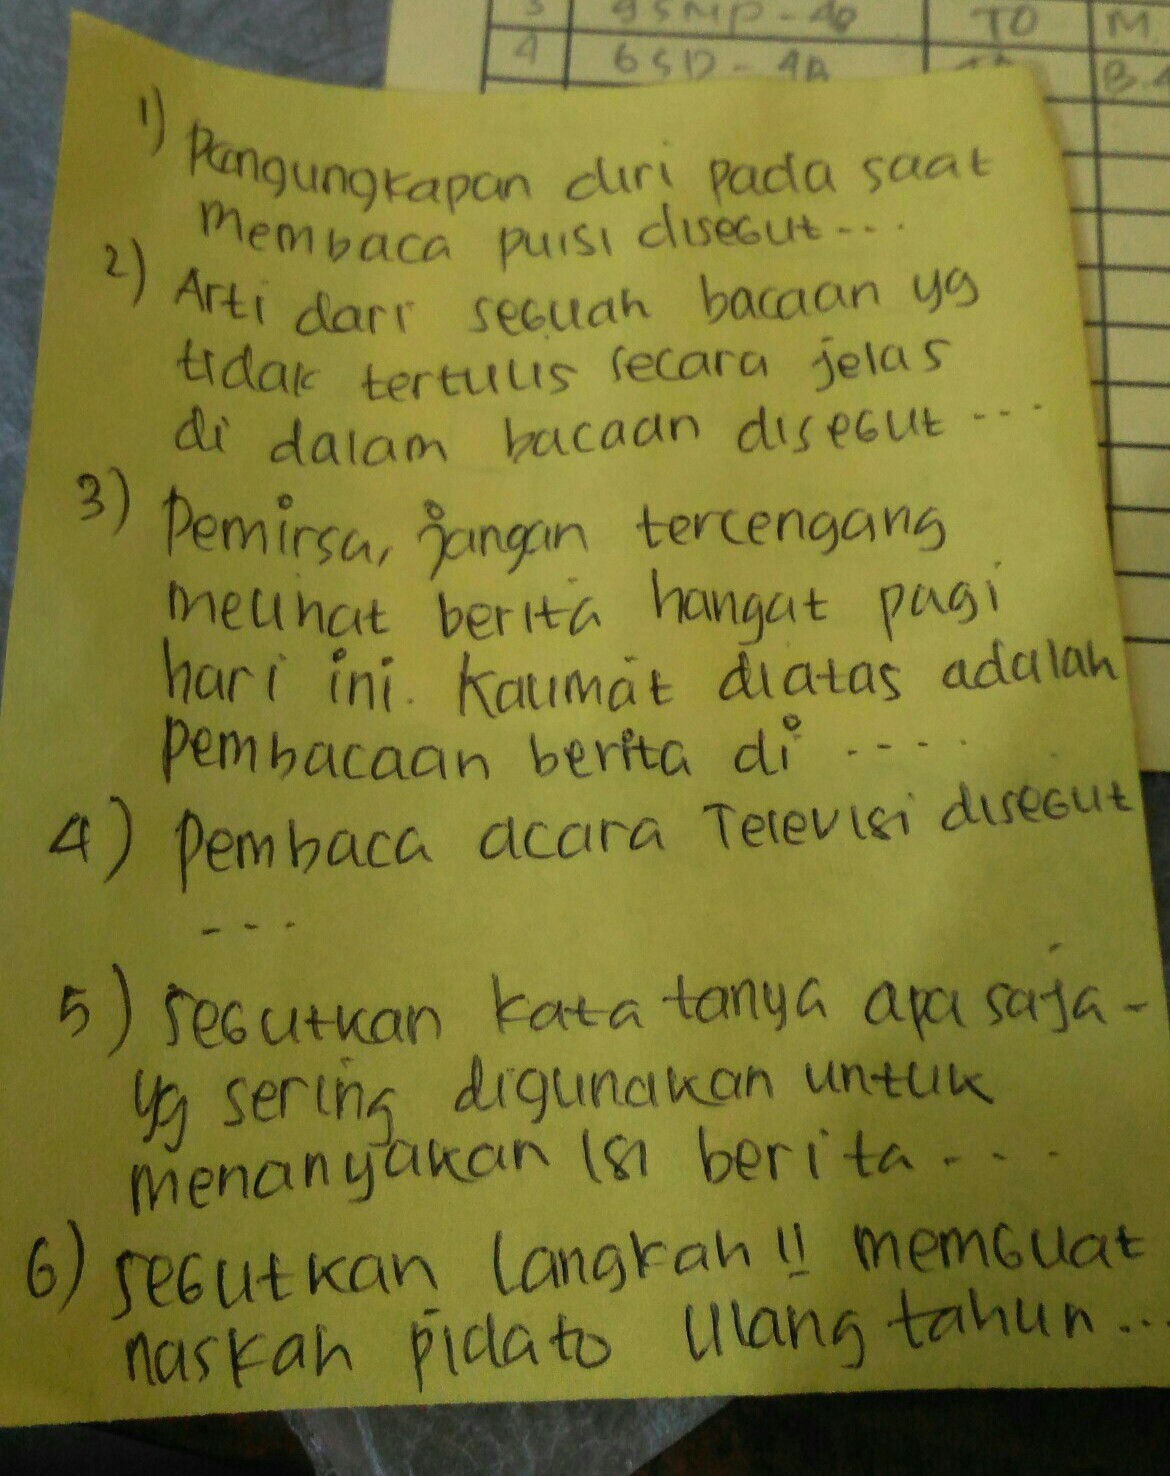 3 9SMP - 4 TO M
4 6SD - 4A B.
1) Pengungkapan diri pada saat
membaca puisi disebut ...
2) Arti dari sebuah bacaan yg
tidak tertulis secara jelas
di dalam bacaan disebut ...
3) Pemirsa, jangan tercengang
melihat berita hangat pagi
hari ini. Kalimat diatas adalah
pembacaan berita di ....
4) Pembaca acara Televisi disebut
...
5) Sebutkan kata tanya apa saja -
yg sering digunakan untuk
menanyakan isi berita ...
6) Sebutkan langkah" membuat
naskah pidato Ulang tahun ...